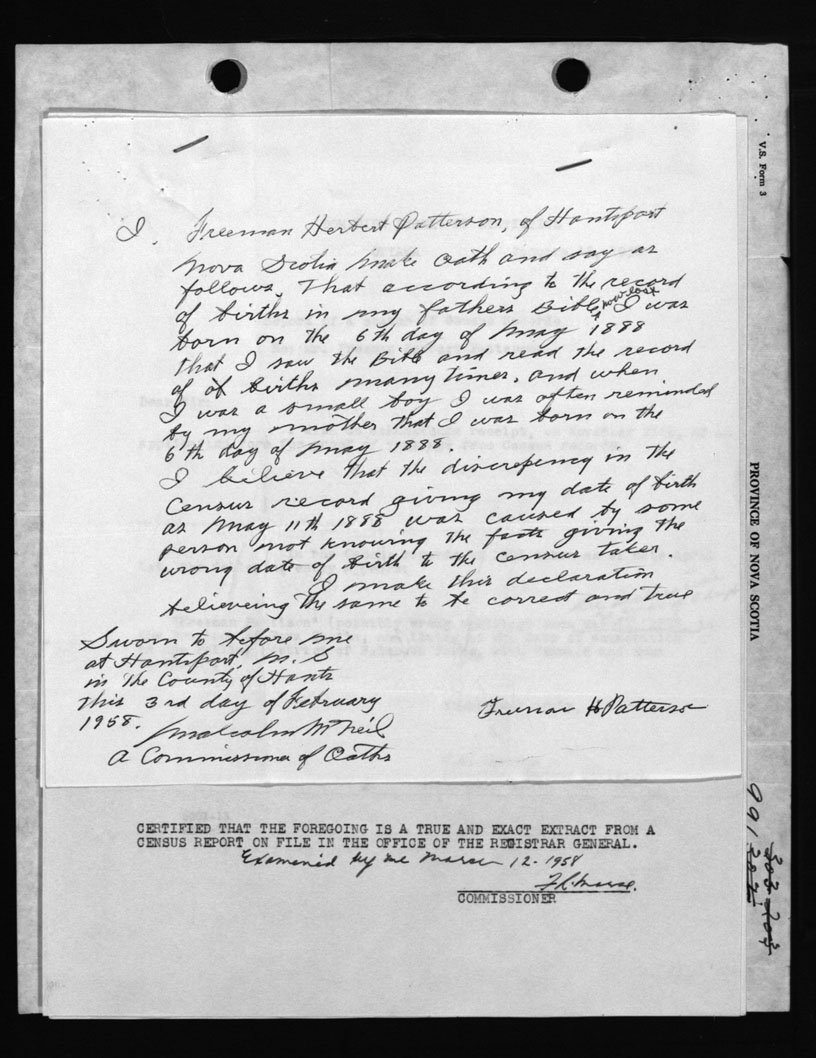 I, Freeman Herbert Patterson, of Hantsport
Nova Scotia make Oath and say as
follows. That according to the record
of births in my fathers Bible now lost I was
born on the 6th day of May 1888
that I saw the Bible and read the record
of of births many times, and when
I was a small boy I was often reminded
by my mother that I was born on the
6th day of May 1888.
I believe that the discrepency in the
Census record giving my date of birth
as May 11th 1888 was caused by some
person not knowing the facts giving the
wrong date of birth to the census taker.
I make this declaration
believeing the same to be correct and true
Sworn to before me
at Hantsport, N.S
in the County of Hants
this 3rd day of February
1958.
Malcolm McNeil
A Commissioner of Oaths
Freeman H Patterson
CERTIFIED THAT THE FOREGOING IS A TRUE AND EXACT EXTRACT FROM A
CENSUS REPORT ON FILE IN THE OFFICE OF THE REGISTRAR GENERAL.
Examined by me March 12-1958
COMMISSIONER
V.S. Form 3
PROVINCE OF NOVA SCOTIA